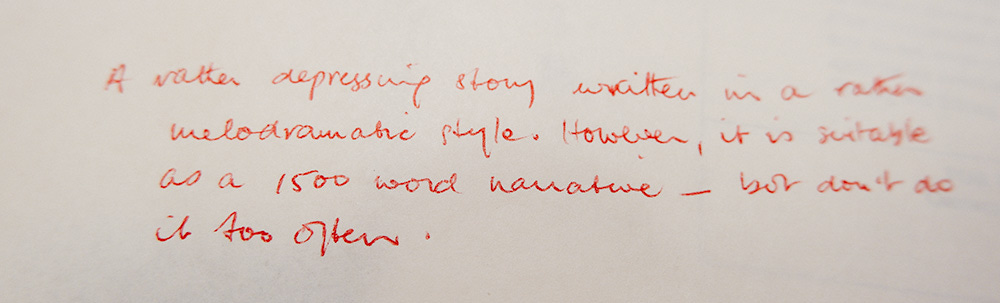 A rather depressing story written in a rather
melodramatic style. However, it is suitable
as a 1500 word narrative – but don't do
it too often.